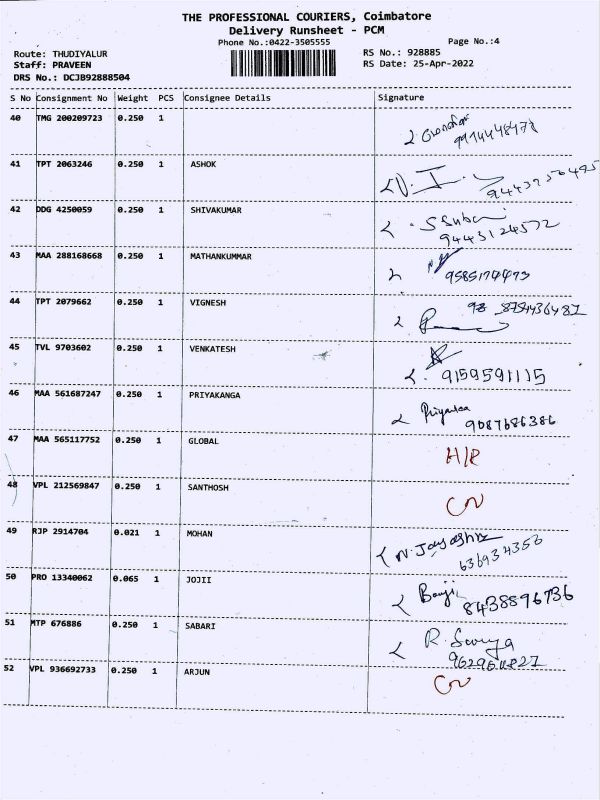 THE PROFESSIONAL COURIERS, Coimbatore
Delivery Runsheet - PCM
Phone No.:0422-3505555 Page No.:4
Route: THUDIYALUR RS No.: 928885
Staff: PRAVEEN RS Date: 25-Apr-2022
DRS No.: DCJB92888504
S No Consignment No Weight PCS Consignee Details Signature
40 TMG 200209723 0.250 1
41 TPT 2063246 0.250 1 ASHOK
42 DDG 4250059 0.250 1 SHIVAKUMAR
9443124572
43 MAA 288168668 0.250 1 MATHANKUMMAR
44 TPT 2079662 0.250 1 VIGNESH
45 TVL 9703602 0.250 1 VENKATESH
9159591115
46 MAA 561687247 0.250 1 PRIYAKANGA
9087686386
47 MAA 565117752 0.250 1 GLOBAL H/R
48 VPL 212569847 0.250 1 SANTHOSH
49 RJP 2914704 0.021 1 MOHAN N. Jayashree
50 PRO 13340062 0.065 1 JOJII
8438896736
51 MTP 676886 0.250 1 SABARI R. Surya
52 VPL 936692733 0.250 1 ARJUN